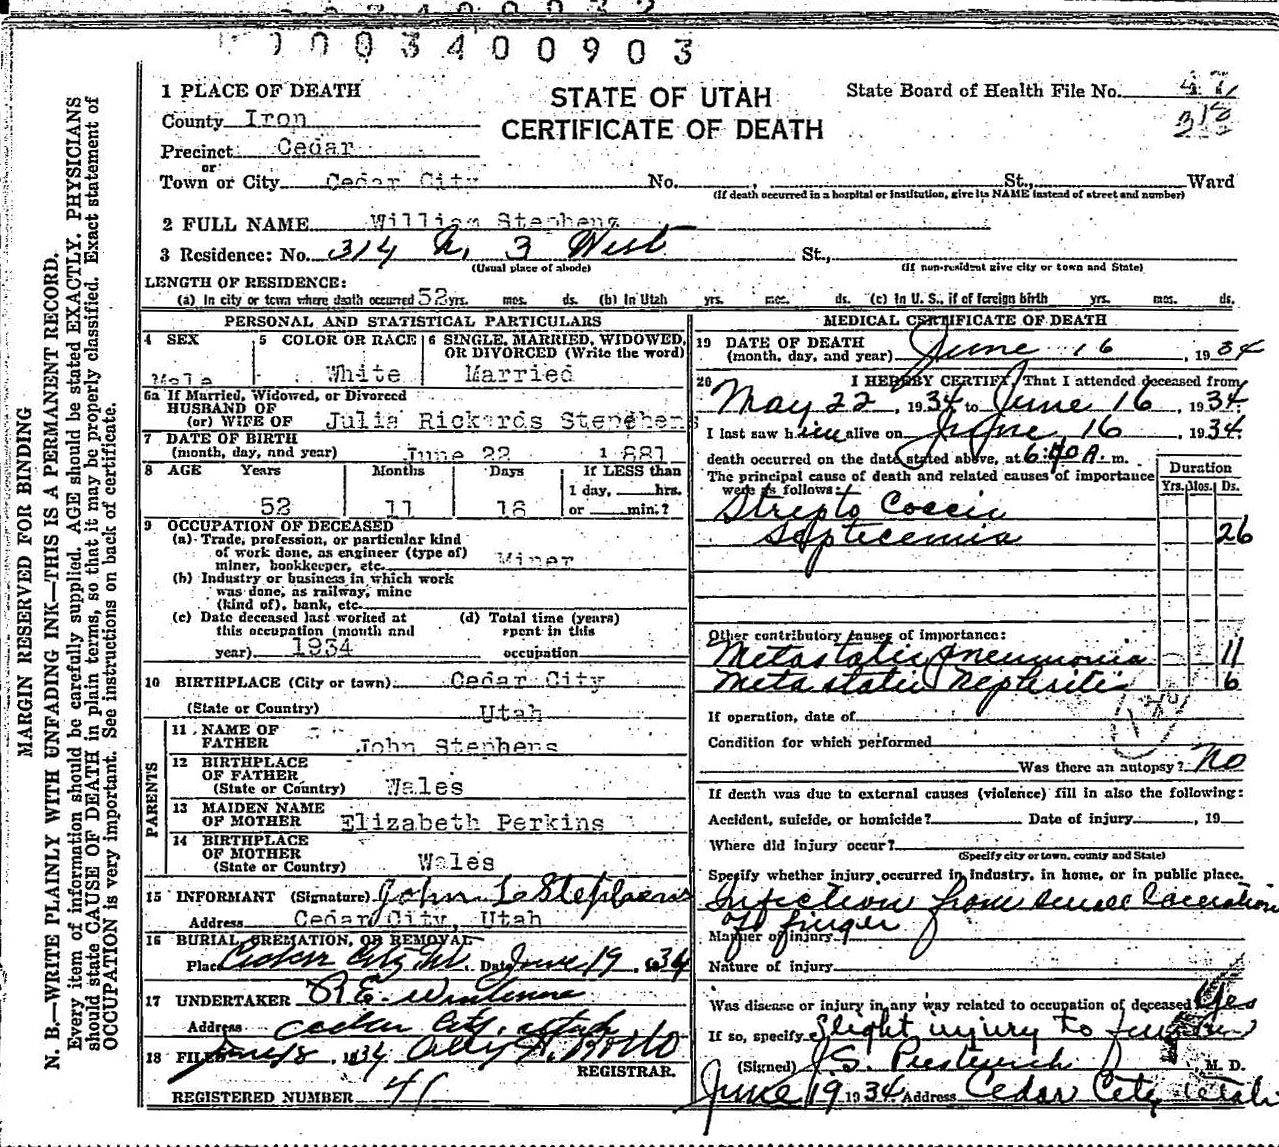 0003400903
1 PLACE OF DEATH
STATE OF UTAH
CERTIFICATE OF DEATH
State Board of Health File No. 47
318
County Iron
Precinct Cedar
or
Town or City Cedar City No. , St., Ward
(If death occurred in a hospital or institution, give its NAME instead of street and number)
2 FULL NAME William Stephens
3 Residence: No. 314 N. 3 West St.,
(Usual place of abode) (If non-resident give city or town and State)
LENGTH OF RESIDENCE:
(a) In city or town where death occurred 52 yrs. mos. ds. (b) In Utah yrs. mos. ds. (c) In U. S., if of foreign birth yrs. mos. ds.
PERSONAL AND STATISTICAL PARTICULARS
4 SEX
Male
5 COLOR OR RACE
White
6 SINGLE, MARRIED, WIDOWED, OR DIVORCED (Write the word)
Married
6a If Married, Widowed, or Divorced
HUSBAND OF
(or) WIFE OF Julia Rickards Stephens
7 DATE OF BIRTH
(month, day, and year) June 22 1881
8 AGE Years Months Days If LESS than
1 day, hrs.
52 11 18 or min.?
9 OCCUPATION OF DECEASED
(a) Trade, profession, or particular kind
of work done, as engineer (type of)
miner, bookkeeper, etc. Miner
(b) Industry or business in which work
was done, as railway, mine
(kind of), bank, etc.
(c) Date deceased last worked at
this occupation (month and
year) 1934
(d) Total time (years)
spent in this
occupation
10 BIRTHPLACE (City or town) Cedar City
(State or Country) Utah
PARENTS
11 NAME OF
FATHER John Stephens
12 BIRTHPLACE
OF FATHER
(State or Country) Wales
13 MAIDEN NAME
OF MOTHER Elizabeth Perkins
14 BIRTHPLACE
OF MOTHER
(State or Country) Wales
15 INFORMANT (Signature) John L Stephens
Address Cedar City, Utah
16 BURIAL, CREMATION, OR REMOVAL
Place Cedar City Ut. Date June 19, 1934
17 UNDERTAKER R.E.
Address Cedar City, Utah
18 FILED June 18, 1934
REGISTRAR.
REGISTERED NUMBER 41
MEDICAL CERTIFICATE OF DEATH
19 DATE OF DEATH
(month, day, and year) June 16, 1934
20 I HEREBY CERTIFY, That I attended deceased from
May 22, 1934 to June 16, 1934.
I last saw him alive on June 16, 1934.
death occurred on the date stated above, at 6:40 A. m.
The principal cause of death and related causes of importance
were as follows:
Duration
Yrs. Mos. Ds.
Strepto Coccic
Septicemia 26
Other contributory causes of importance:
Metastatic Pneumonia 11
Metastatic Nephritis 6
If operation, date of
Condition for which performed
Was there an autopsy? No
If death was due to external causes (violence) fill in also the following:
Accident, suicide, or homicide? Date of injury , 19
Where did injury occur?
(Specify city or town, county and State)
Specify whether injury occurred in industry, in home, or in public place.
Infection from small laceration
of finger
Manner of injury
Nature of injury
Was disease or injury in any way related to occupation of deceased? Yes
If so, specify Slight injury to finger
(Signed) J.S. Prestwich M. D.
June 19 1934 Address Cedar City, Utah
MARGIN RESERVED FOR BINDING
N. B.—WRITE PLAINLY WITH UNFADING INK—THIS IS A PERMANENT RECORD.
Every item of information should be carefully supplied. AGE should be stated EXACTLY. PHYSICIANS
should state CAUSE OF DEATH in plain terms, so that it may be properly classified. Exact statement of
OCCUPATION is very important. See instructions on back of certificate.